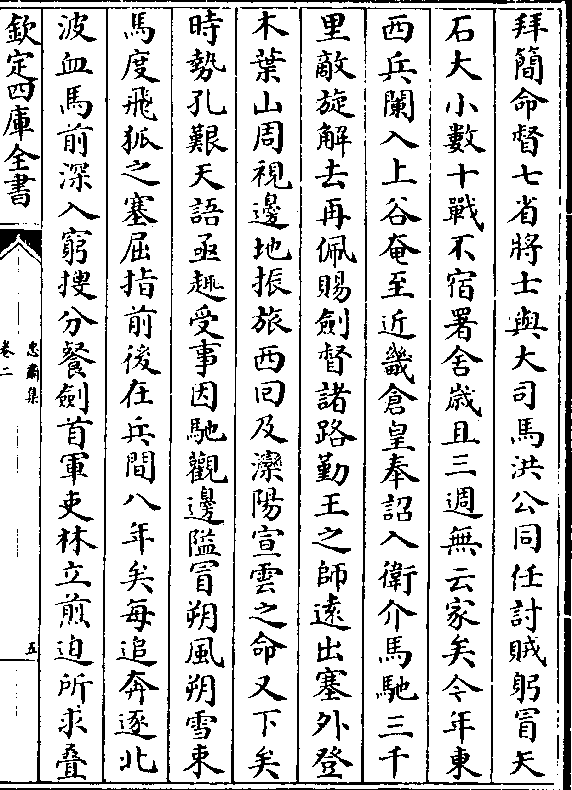 拜簡命督七省將士與大司馬洪公同任討賊躬冒矢
石大小數十戰不宿署舍歳且三週無云家矣今年東
西兵闌入上谷奄至近畿倉皇奉詔入衛介馬馳三千
里敵旋解去再佩賜劍督諸路勤王之師遠出塞外登
木葉山周視邊地振旅西囘及灤陽宣雲之命又下矣
時勢孔艱天語亟趣受事因馳觀邊隘冒朔風朔雪東
馬度飛狐之塞屈指前後在兵間八年矣每追奔逐北
波血馬前深入窮搜分餐劍首軍吏林立煎迫所求疊
欽定四庫全書
忠肅集
卷二
五